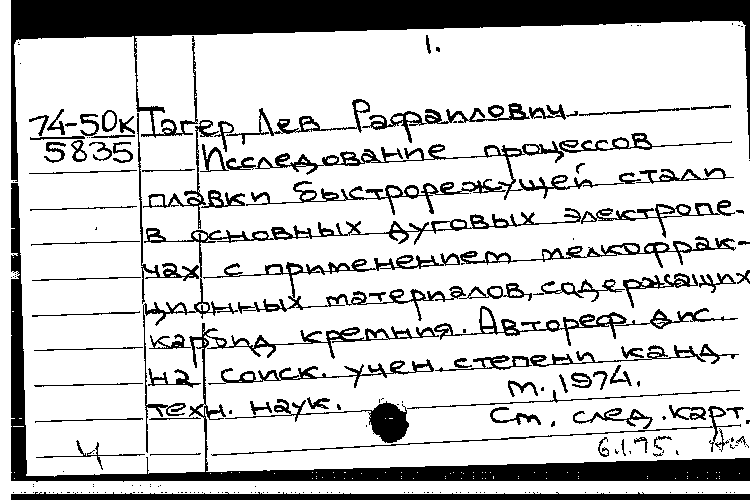 1.
74-50к Тагер, Лев Рафаилович.
5835 Исследование процессов
плавки быстрорежущей стали
в основных дуговых электропе-
чах с применением мелкофрак-
ционных материалов, содержащих
карбид кремния. Автореф. дис.
на соиск. учен. степени канд.
техн. наук. М., 1974.
См. след. карт.
Ч 6.1.75.